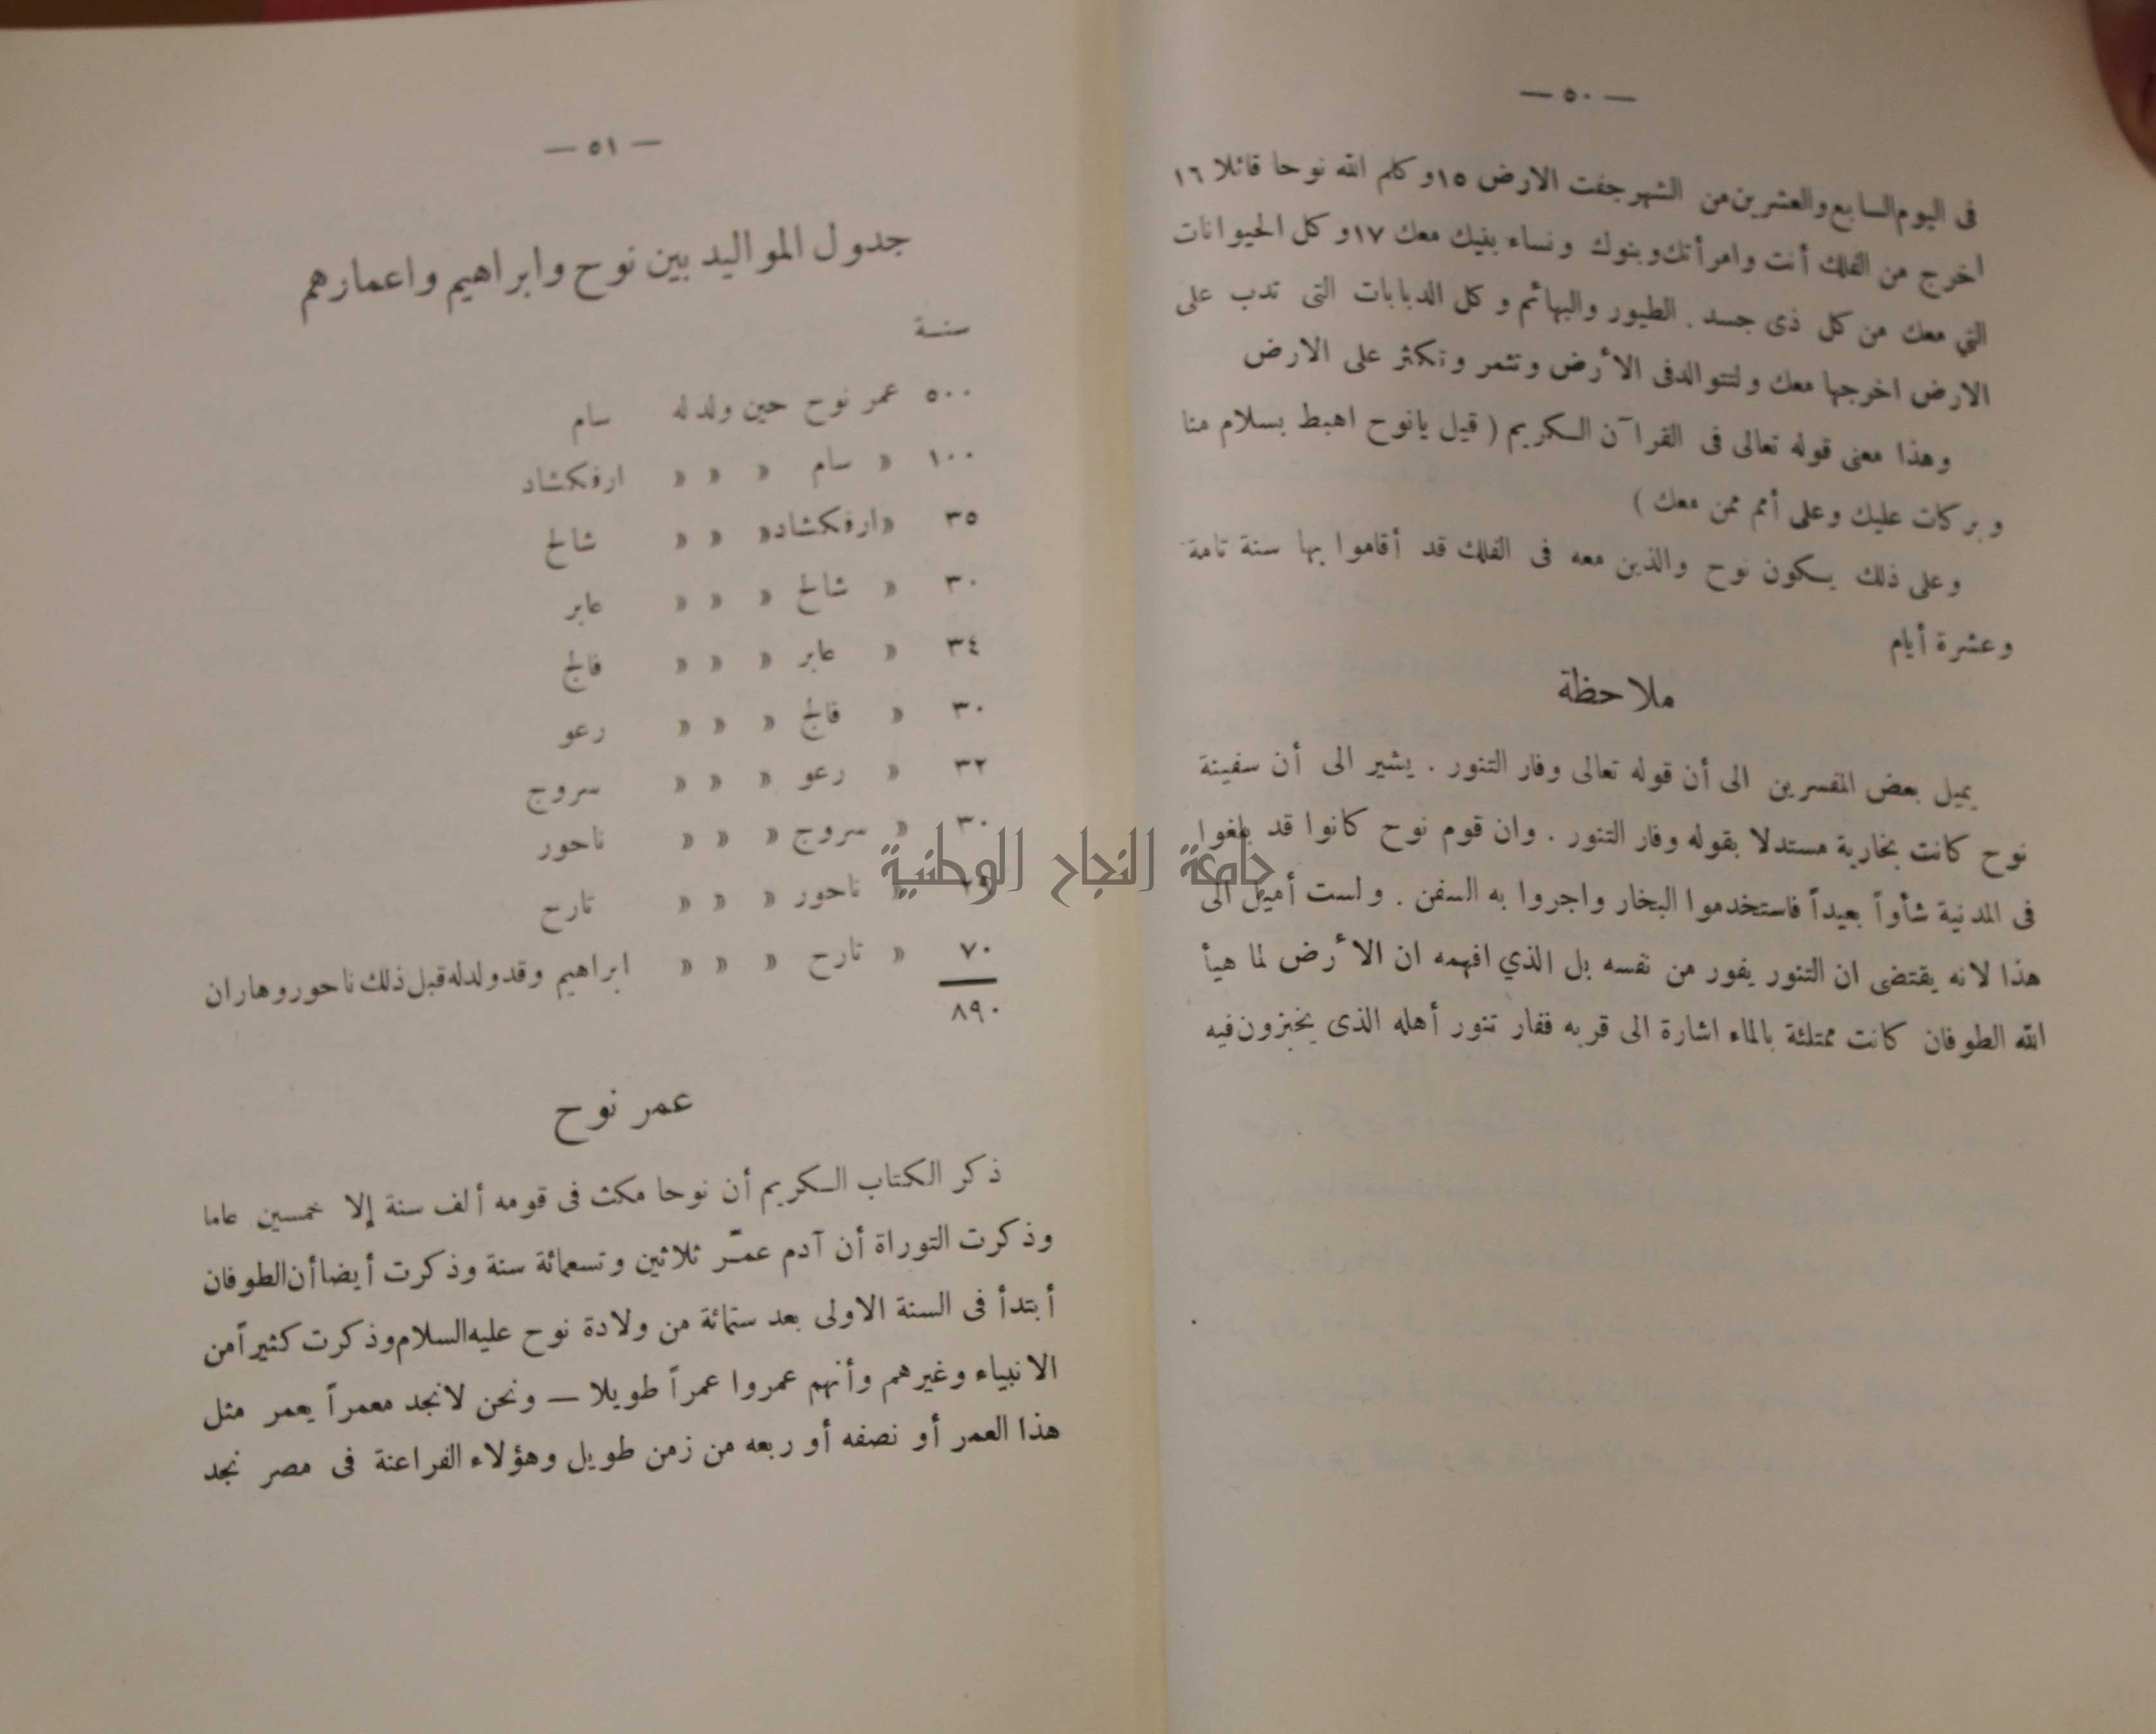 — ٥٠ —
فى اليوم السابع والعشرين من الشهر جفت الارض ١٥ وكلم الله نوحا قائلا ١٦
اخرج من الفلك أنت وامرأتك وبنوك ونساء بنيك معك ١٧ وكل الحيوانات
التي معك من كل ذى جسد . الطيور والبهائم وكل الدبابات التى تدب على
الارض اخرجها معك ولتتوالد فى الأرض وتثمر وتكثر على الارض
وهذا معنى قوله تعالى فى القرآن الكريم ( قيل يانوح اهبط بسلام منا
وبركات عليك وعلى أمم ممن معك )
وعلى ذلك يكون نوح والذين معه فى الفلك قد أقاموا بها سنة تامة
وعشرة أيام
ملاحظة
يميل بعض المفسرين الى أن قوله تعالى وفار التنور . يشير الى أن سفينة
نوح كانت بخارية مستدلا بقوله وفار التنور . وان قوم نوح كانوا قد بلغوا
فى المدنية شأواً بعيداً فاستخدموا البخار واجروا به السفن . ولست أميل الى
هذا لانه يقتضى ان التنور يفور من نفسه بل الذي افهمه ان الأرض لما هيأ
الله الطوفان كانت ممتلئة بالماء اشارة الى قربه ففار تنور أهله الذى يخبزون فيه
— ٥١ —
جدول المواليد بين نوح وابراهيم واعمارهم
سنة
٥٠٠ عمر نوح حين ولد له سام
١٠٠ « سام « « « ارفكشاد
٣٥ « ارفكشاد « « « شالح
٣٠ « شالح « « « عابر
٣٤ « عابر « « « فالج
٣٠ « فالج « « « رعو
٣٢ « رعو « « « سروج
٣٠ « سروج « « « ناحور
« ناحور « « « تارح
٧٠ « تارح « « « ابراهيم وقد ولد له قبل ذلك ناحور وهاران
٨٩٠
عمر نوح
ذكر الكتاب الكريم أن نوحا مكث فى قومه ألف سنة إلا خمسين عاما
وذكرت التوراة أن آدم عمّر ثلاثين وتسعمائة سنة وذكرت أيضا أن الطوفان
أبتدأ فى السنة الاولى بعد ستمائة من ولادة نوح عليه السلام وذكرت كثيراً من
الانبياء وغيرهم وأنهم عمروا عمراً طويلا — ونحن لانجد معمراً يعمر مثل
هذا العمر أو نصفه أو ربعه من زمن طويل وهؤلاء الفراعنة فى مصر نجد
جامعة النجاح الوطنية